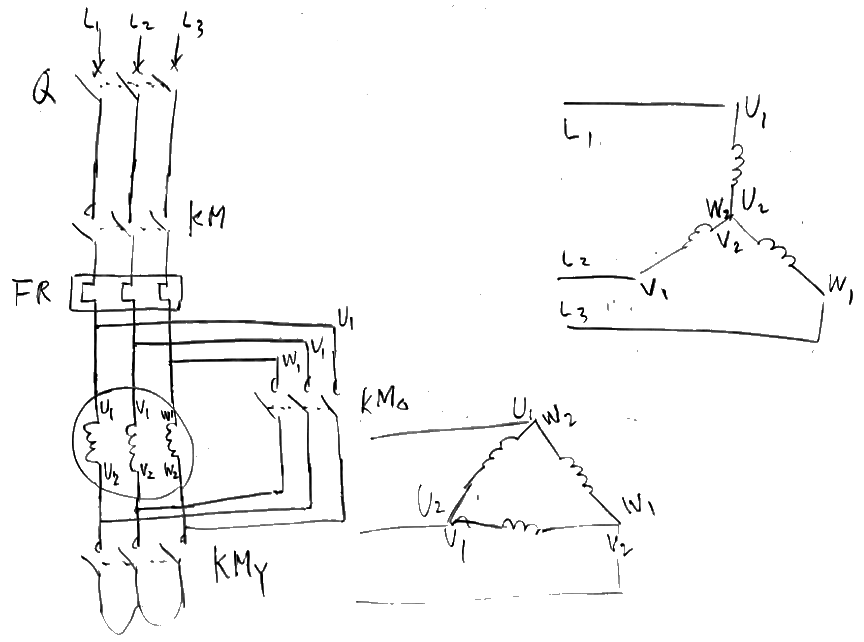 L1 L2 L3
Q
KM
FR
U1
V1
W1
U1 V1 W1
U2 V2 W2
KM△
KMY
L1
U1
W2 U2
V2
L2
V1
W1
L3
U1 W2
U2
V1
W1
V2